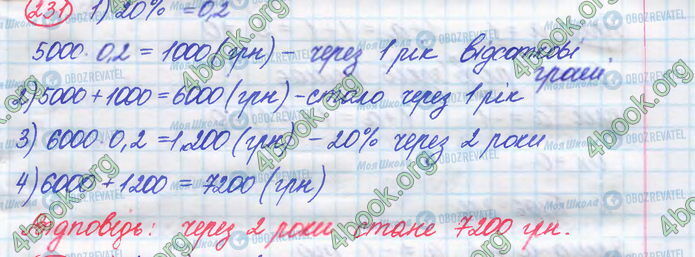 231) 1) 20% = 0,2
5000 · 0,2 = 1000 (грн) – через 1 рік відсоткові
гроші.
2) 5000 + 1000 = 6000 (грн) – стало через 1 рік
3) 6000 · 0,2 = 1200 (грн) – 20% через 2 роки
4) 6000 + 1200 = 7200 (грн)
Відповідь: через 2 роки стане 7200 грн.
4book.org
МояШкола
OBOZREVATEL